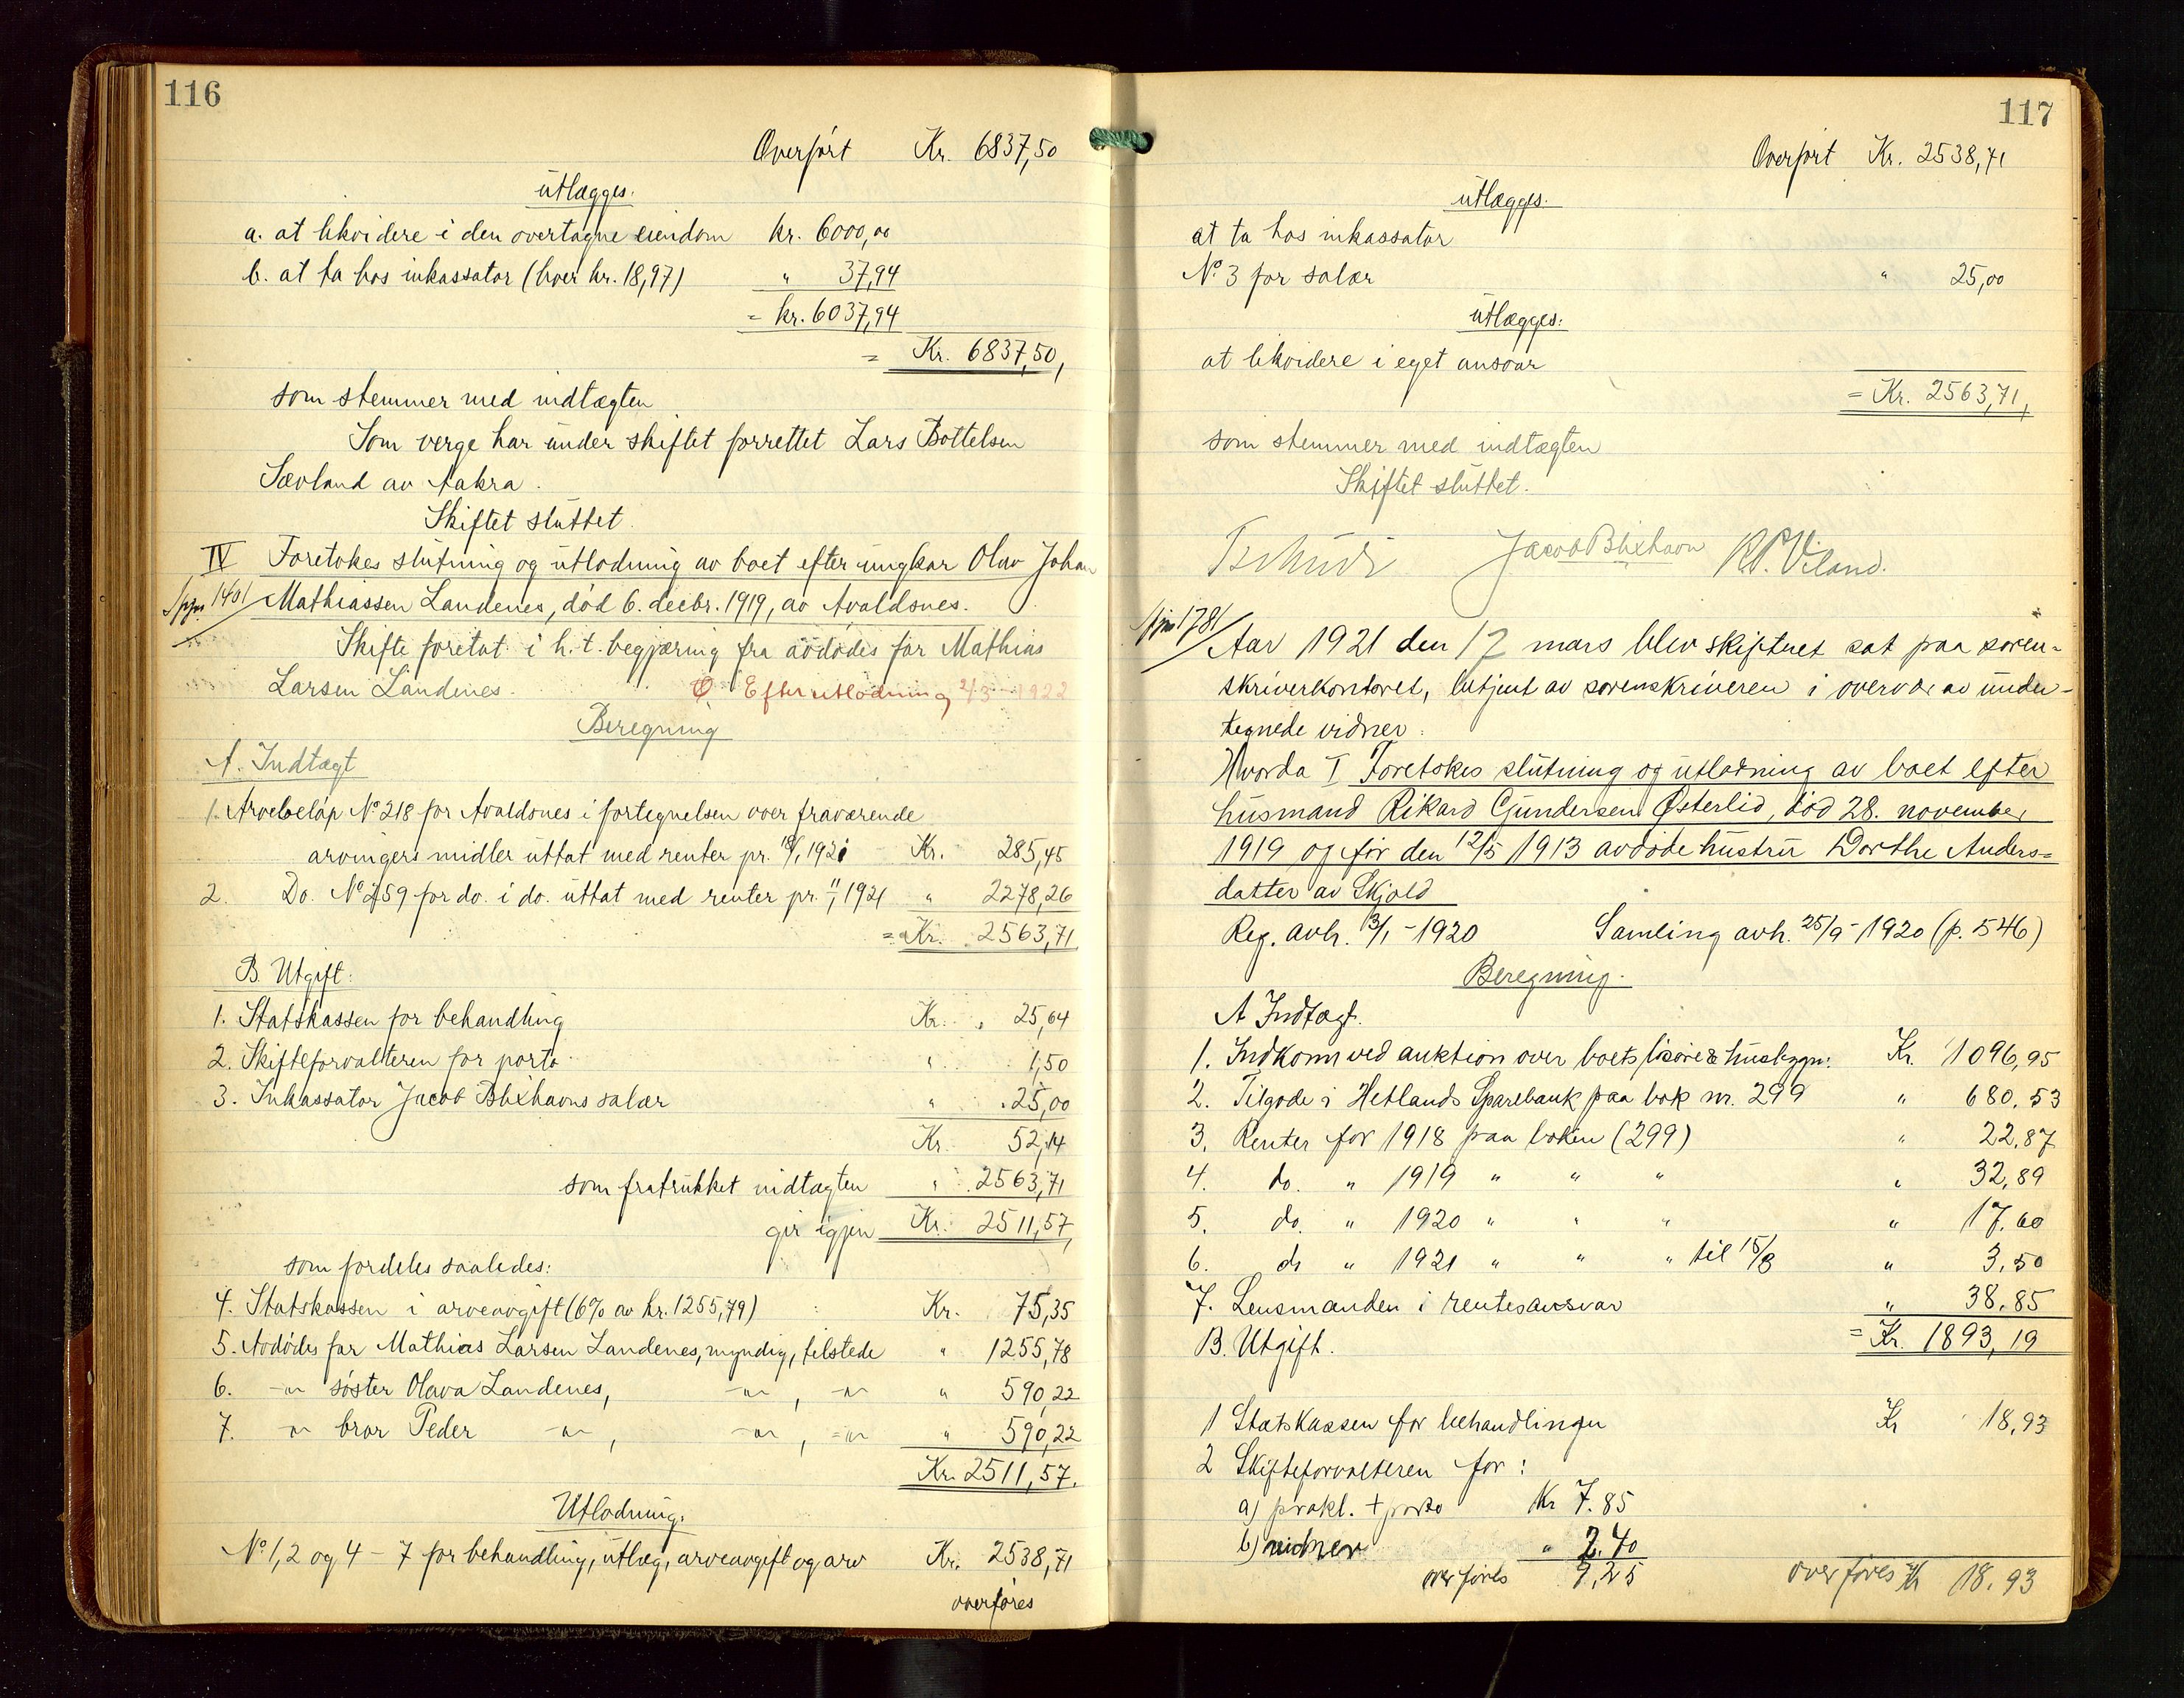 116
Overført Kr. 6837,50
utlægges.
a. at likvidere i den overtagne eiendom kr. 6000,00
b. at ta hos inkassator (hver kr. 18,97) " 37,94
= kr. 6037,94
= Kr. 6837,50,
som stemmer med indtægten
Som verge har under skiftet forrettet Lars Bottelsen
Sævland av Aakra.
Skiftet sluttet.
IV Foretokes slutning og utlodning av boet efter ungkar Olav Johan
1401 Mathiassen Landenes, død 6. decbr. 1919, av Avaldsnes.
Skifte foretat i h. t. begjæring fra avdødes far Mathias
Larsen Landenes. Efterutlodning 2/3 1922
Beregning
A. Indtægt
1. Arvebeløp No 218 for Avaldsnes i fortegnelsen over fraværende
arvingers midler uttat med renter pr. 1921 Kr. 285,45
2. Do. No 259 for do. i do. uttat med renter pr. " 1921 " 2278,26
= Kr. 2563,71
B. Utgift:
1. Statskassen for behandling Kr. 25,64
2. Skifteforvalteren for porto " 1,50
3. Inkassator Jacob Blixhavns salær " 25,00
Kr. 52,14
som fratrukket indtægten " 2563,71
gir igjen Kr. 2511,57,
som fordeles saaledes:
4. Statskassen i arveavgift (6% av kr. 1255,79) Kr. 75,35
5. Avdødes far Mathias Larsen Landenes, myndig, tilstede " 1255,78
6. -"- søster Olava Landenes, -"-, -"- " 590,22
7. -"- bror Peder -"-, -"-, -"- " 590,22
Kr. 2511,57.
Utlodning.
No 1, 2 og 4 - 7 for behandling, utlæg, arveavgift og arv Kr. 2538,71
overføres
117
Overført Kr. 2538,71
utlægges.
at ta hos inkassator
No. 3 for salær " 25,00
utlægges:
at likvidere i eget ansvar
= Kr. 2563,71,
som stemmer med indtægten
Skiftet sluttet.
Tschudi Jacob Blixhavn R. P. Viland.
1781 Aar 1921 den 17 mars blev skifteret sat paa soren-
skriverkontoret, betjent av sorenskriveren i overvær av under-
tegnede vidner.
Hvorda I Foretokes slutning og utlodning av boet efter
husmand Rikard Gundersen Østerlid, død 28. november
1919 og før den 12/5 1913 avdøde hustru Dorthe Anders-
datter av Skjold
Reg. avh. 13/1 - 1920 Samling avh. 25/9 - 1920 (p. 546)
Beregning.
A Indtægt.
1. Indkom ved auktion over boets løsøre & husbygn: Kr. 1096,95
2. Tilgode i Hetlands Sparebank paa bok nr. 299 " 680.53
3. Renter for 1918 paa boken (299) " 22,87
4. do. " 1919 " " " " 32,89
5. do. " 1920 " " " " 17.60
6. do " 1921 " " " til 15/3 " 3,50
7. Lensmanden i rentesansvar " 38.85
= Kr. 1893,19
B. Utgift.
1 Statskassen for behandlingen Kr 18,93
2 Skifteforvalteren for:
a) prokl. + porto Kr 7.85
b) vidner " 2.40
overføres 9,25 overføres Kr 18.93